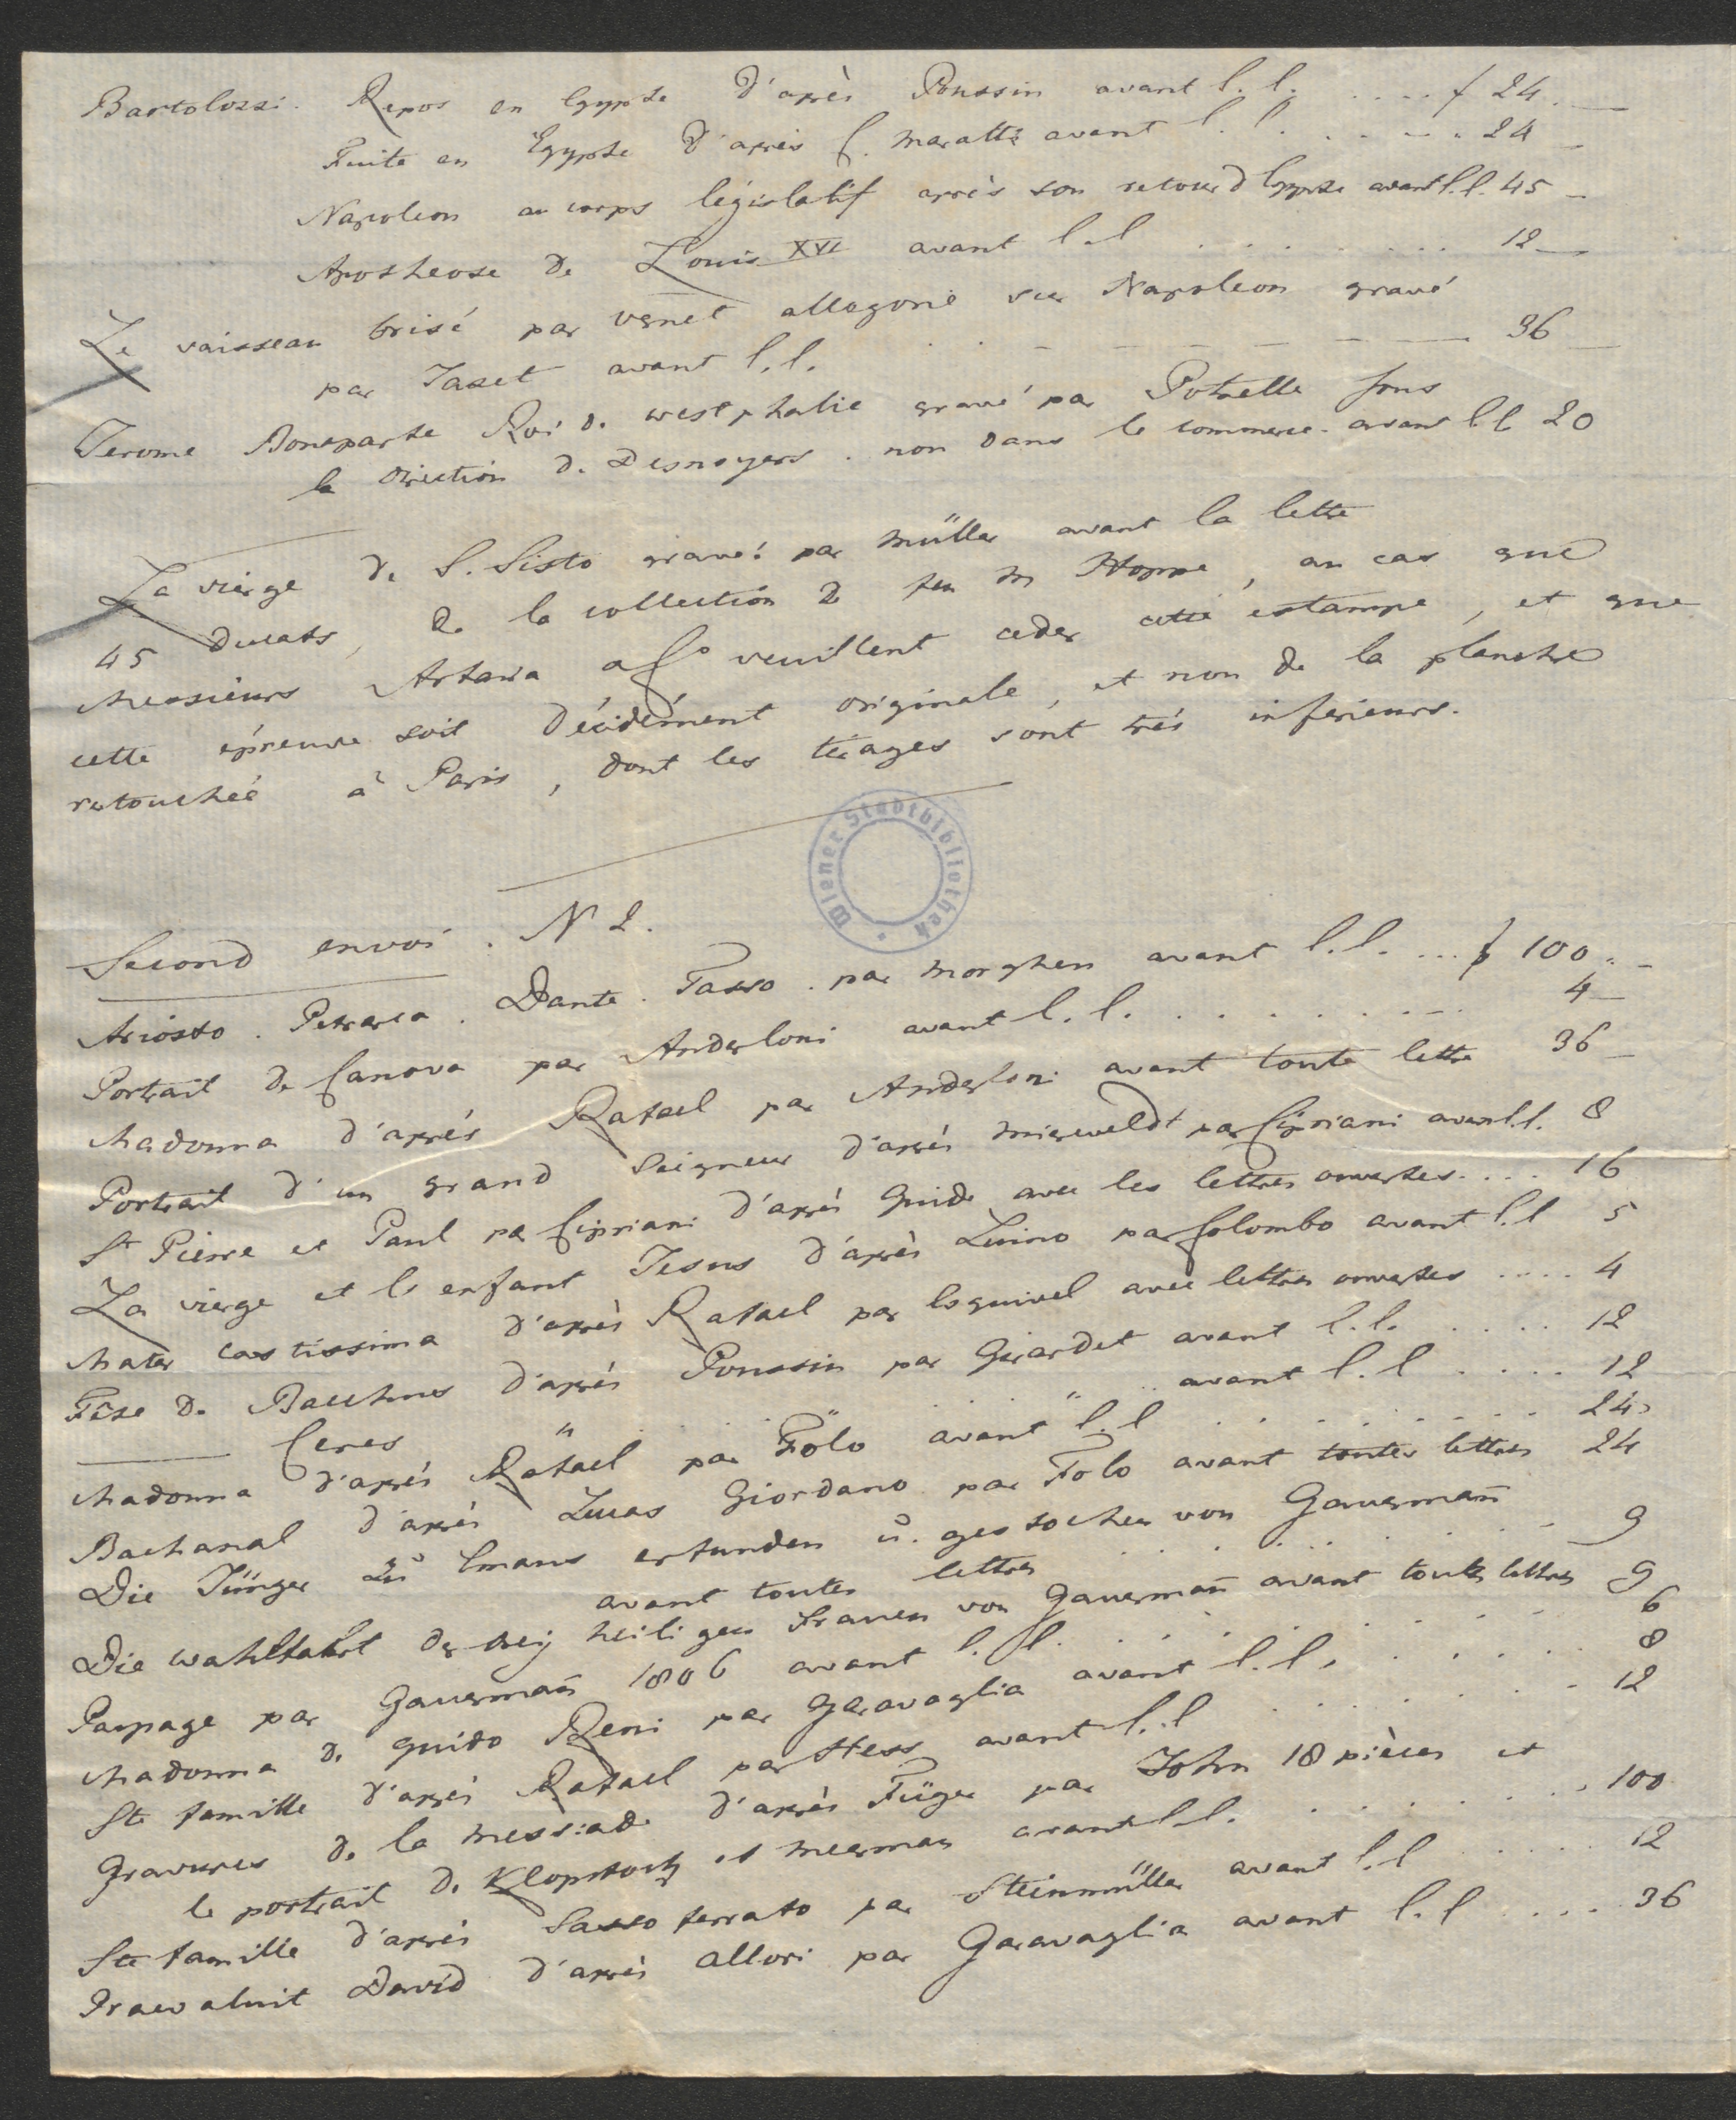 Bartolozzi. Repos en Egypte d'après Poussin avant l. l. .... f 24. —
Fuite en Egypte d'après C. Maratti avant l. l. ...... 24 —
Napoleon au corps législatif après son retour d'Egypte avant l. l. 45 —
Apotheose de Louis XVI avant l. l ........ 12 —
Le vaisseau brisé par Vernet allegorie sur Napoleon gravé
par Jazet avant l. l. . . — — — — — — 36 —
Jerome Bonaparte Roi de Westphalie gravé par Potrelle sous
la direction de Desnoyers. non dans le commerce. avant l l 20
La vierge de S. Sisto gravée par Müller avant la lettre
45 ducats, de la collection de feu M Hoppe, au cas que
Messieurs Artaria & Co veuillent ceder cette estampe, et que
cette épreuve soit décidément originale, et non de la planche
retouchée à Paris, dont les tirages sont très inferieurs.
Wiener Stadtbibliothek
Second envoi. N 2.
Ariosto. Petrarca. Dante. Tasso. par Morghen avant l. l. ... f 100. —
Portrait de Canova par Anderloni avant l. l. ......... 4 —
Madonna d'après Rafael par Anderloni avant toute lettre 36 —
Portrait d'un grand Seigneur d'après Mierveldt par Cipriani avant l. l. 8
St Pierre et Paul par Cipriani d'après Guide avec les lettres ouvertes .... 16
La vierge et l'enfant Jesus d'après Luino par Colombo avant l. l 5
Mater castissima d'après Rafael par Esquivel avec lettres ouvertes .... 4
Fête de Bacchus d'après Poussin par Girardet avant l. l. .... 12
—— Ceres " . . . . . " .. avant l. l .... 12
Madonna d'après Rafael par Folo avant l. l ......... 24
Bachanal d'après Lucas Giordano par Folo avant toutes lettres 24
Die Jünger zu Emaus erfunden u. gestochen von Gauermañ
avant toutes lettres ....... 9
Die Wahlfahrt der drey heiligen Frauen von Gauermañ avant toutes lettres 9
Paysage par Gauermañ 1806 avant l. l. ........ 6
Madonna de Guido Reni par Garavaglia avant l. l. ..... 8
Ste famille d'après Rafael par Hess avant l. l ........ 12
Gravures de la Messiade d'après Füger par John 18 pièces et
le portrait de Klopstock et Meerman avant l. l. ....... 100
Ste famille d'après Sassoferrato par Steinmüller avant l. l ..... 12
Praevaluit David d'après Allori par Garavaglia avant l. l .... 36